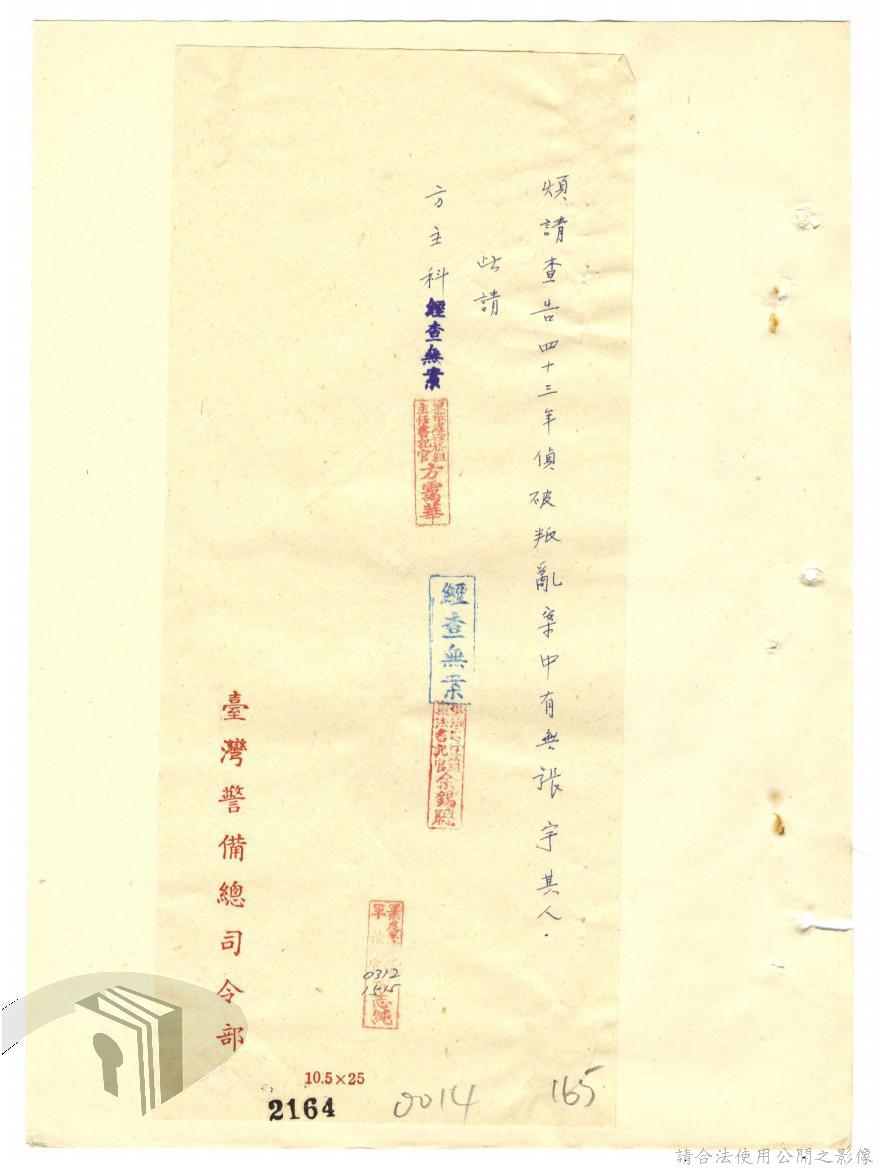 煩請查告四十三年偵破叛亂案中有無張宇其人.
此請
方主科
經查無案
主任書記官方靄華
經查無案
書記官余錫
軍
志純
0312
1515
臺灣警備總司令部
10.5×25
2164
0014
165
請合法使用公開之影像